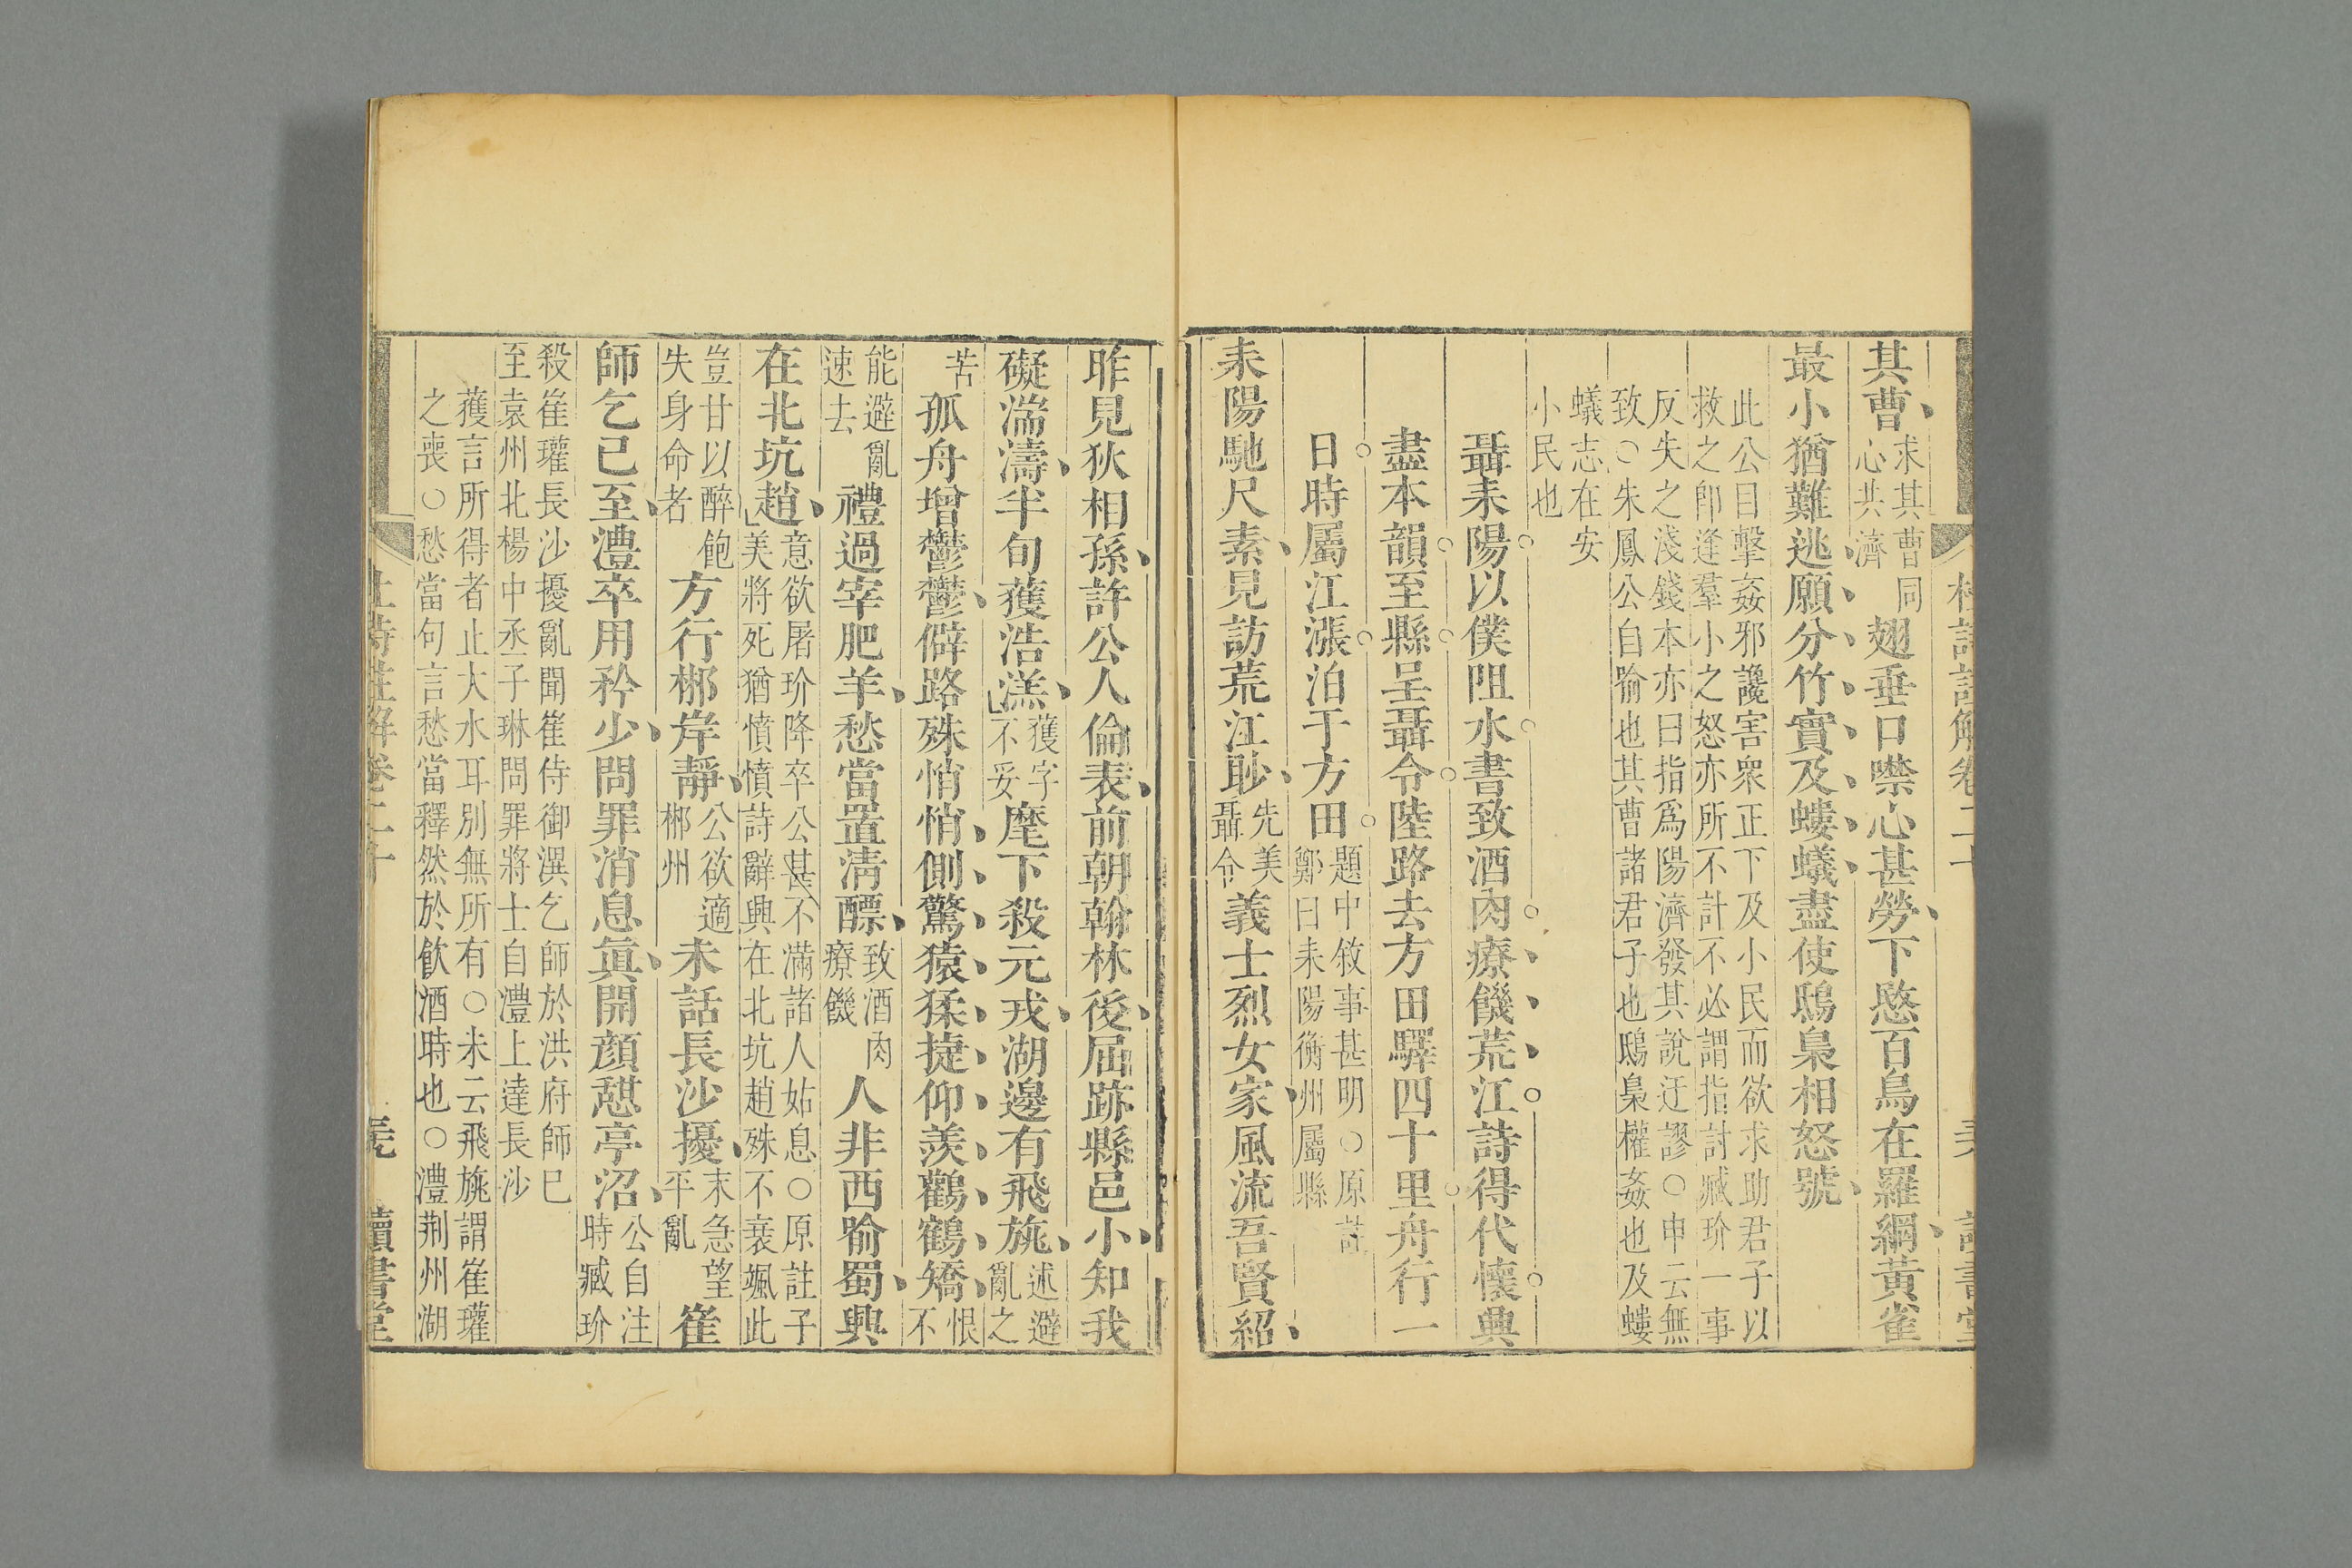 杜詩註解卷二十
其曹求其曹同心共濟翅垂口噤心甚勞下愍百鳥在羅網黃雀
最小猶難逃願分竹實及螻蟻盡使鴟梟相怒號
此公目擊姦邪讒害衆正下及小民而欲求助君子以
救之卽逢羣小之怒亦所不計不必謂指討臧玠一事
反失之淺錢本亦曰指爲陽濟發其說迂謬○申云無
致○朱鳳公自喻也其曹諸君子也鴟梟權姦也及螻
蟻志在安
小民也
聶耒陽以僕阻水書致酒肉療饑荒江詩得代懷興
盡本韻至縣呈聶令陸路去方田驛四十里舟行一
日時屬江漲泊于方田題中敘事甚明○原註鄭曰耒陽衡州屬縣
耒陽馳尺素見訪荒江眇先美聶令義士烈女家風流吾賢紹
昨見狄相孫許公人倫表前朝翰林後屈跡縣邑小知我
礙湍濤半旬獲浩溔獲字不妥麾下殺元戎湖邊有飛旐述避亂之
苦孤舟增鬱鬱僻路殊悄悄側驚猿猱捷仰羨鸛鶴矯恨不
能避亂速去禮過宰肥羊愁當置清醥致酒肉療饑人非西喻蜀興
在北坑趙意欲屠玠降卒公甚不滿諸人姑息○原註子美將死猶憤憤詩辭興在北坑趙殊不衰颯此
豈甘以醉飽失身命者方行郴岸靜公欲適郴州未話長沙擾末急望平亂崔
師乞已至澧卒用矜少問罪消息眞開顏憩亭沼公自注時臧玠
殺崔瓘長沙擾亂聞崔侍御潩乞師於洪府師已
至袁州北楊中丞子琳問罪將士自澧上達長沙
獲言所得者止大水耳別無所有○末云飛旐謂崔瓘
之喪○愁當句言愁當釋然於飲酒時也○澧荆州湖
杜詩註解卷二十
讀書堂